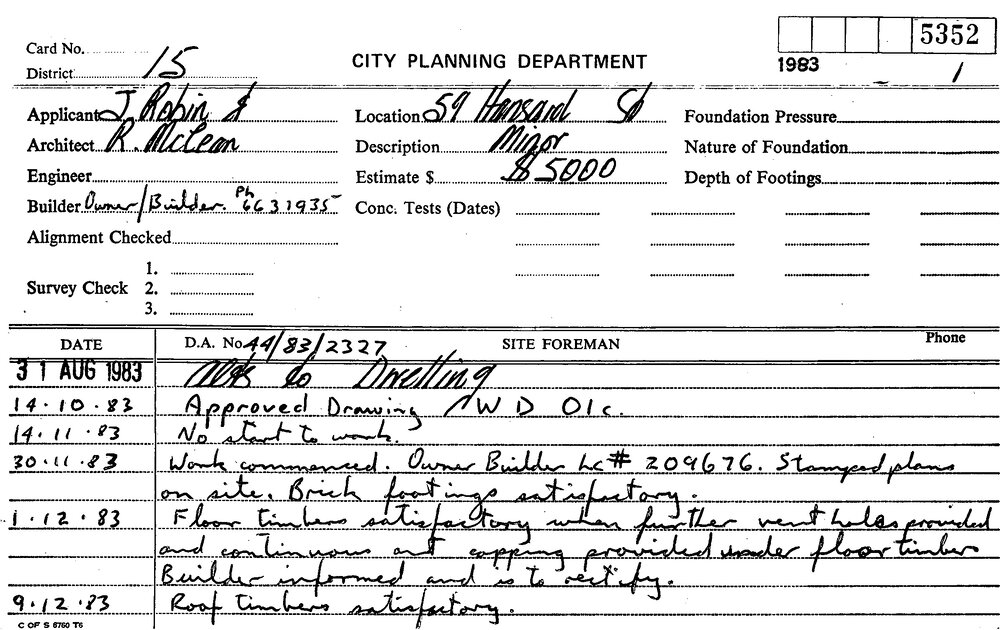 5352
Card No.
District 15
CITY PLANNING DEPARTMENT
1983 - 1
Applicant J Robin &
Location 59 Hansard St
Foundation Pressure
Architect R. McLean
Description Minor
Nature of Foundation
Engineer
Estimate $ $5000
Depth of Footings
Builder Owner/Builder. Ph 6631935
Conc. Tests (Dates)
Alignment Checked
Survey Check
1.
2.
3.
DATE
D.A. No 44/83/2327
SITE FOREMAN
Phone
31 AUG 1983 to Dwelling
14.10.83 Approved Drawing W D 01c.
14.11.83 No start to work.
30.11.83 Work commenced. Owner Builder Lc# 209676. Stamped plans
on site. Brick footings satisfactory.
1.12.83 Floor timbers satisfactory when further vent holes provided
and continuous ant capping provided under floor timbers
Builder informed and is to rectify.
9.12.83 Roof timbers satisfactory.
C OF S 6760 T6